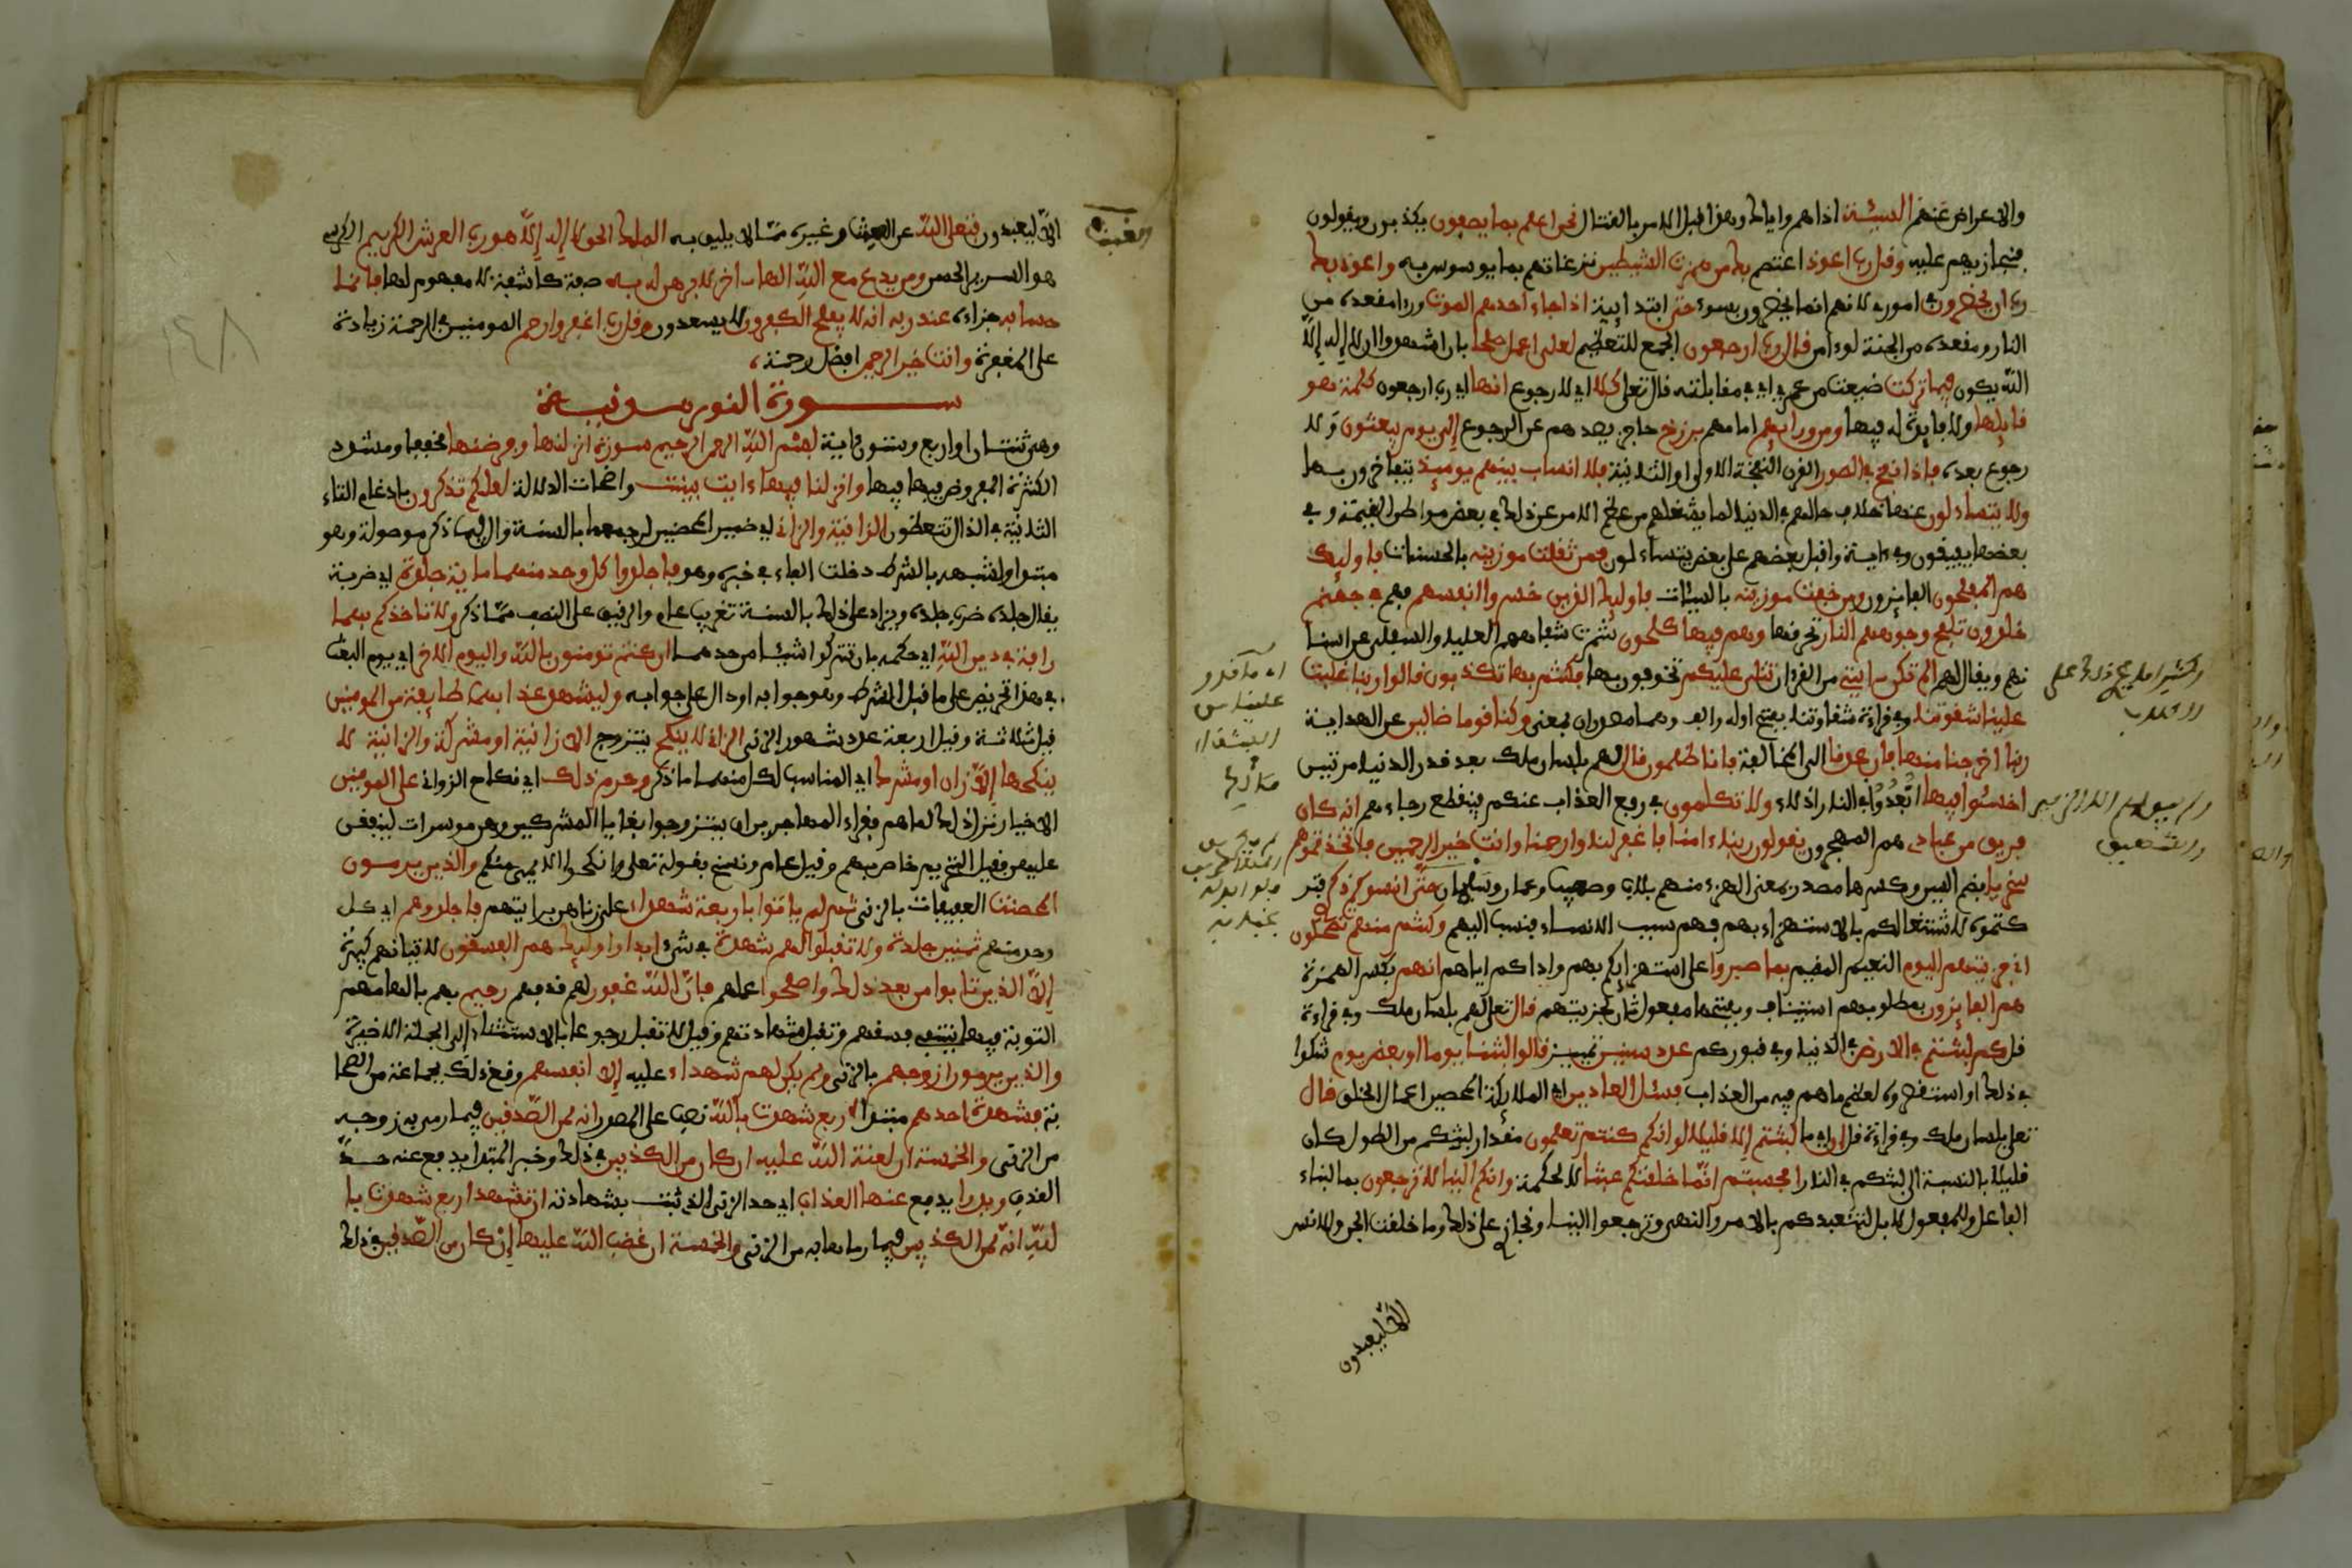 والاعراض عنهم السيئة اذاهم واياك وهذا قبل الامر بالقتال نحن اعلم بما يصفون يكذبون ويقولون
فنجازيهم عليه وقل رب اعوذ اعتصم بك من همزت الشيطين نزغاتهم بما يوسوس به واعوذ بك
رب ان يحضرون في اموري لانهم انما يحضرون بسوء حتى ابتدايية اذا جاء احدهم الموت وراى مقعده من
النار ومقعده من الجنة لو امن قال رب ارجعون الجمع للتعظيم لعلي اعمل صلحا بان اشهد ان لا اله الا
الله يكون فيما تركت ضيعت من عمري اي في مقابلته قال تعلى كلا اي لا رجوع انها اي رب ارجعون كلمة هو
قايلها ولا فايدة له فيها ومن ورايهم امامهم برزخ حاجز يصدهم عن الرجوع الى يوم يبعثون ولا
رجوع بعده فاذا نفخ في الصور القرن النفخة الاولى او الثانية فلا انساب بينهم يوميذ يتفاخرون بها
ولا يتساءلون عنها خلاف حالهم في الدنيا لما يشغلهم من عظم الامر عن ذلك في بعض مواطن القيمة وفي
بعضها يفيقون وفي اية واقبل بعضهم على بعض يتساءلون فمن ثقلت موزينه بالحسنات فاوليك
هم المفلحون الفايزون ومن خفت موزينه بالسيات فاوليك الذين خسروا انفسهم فهم في جهنم
خلدون تلفح وجوههم النار تحرقها وهم فيها كلحون شمرت شفاههم العليا والسفلى عن اسنا
نهم ويقال لهم الم تكن ايتي من القران تتلى عليكم تخوفون بها فكنتم بها تكذبون قالوا ربنا غلبت
علينا شقوتنا وفي قراءة شقاوتنا بفتح اوله والف وهما مصدران بمعنى وكنا قوما ضالين عن الهداية
ربنا اخرجنا منها فان عدنا الى المخالفة فانا ظلمون قال لهم بلسان ملك بعد قدر الدنيا مرتين
اخسئوا فيها ابعدوا في النار اذلاء ولا تكلمون في رفع العذاب عنكم فينقطع رجاءهم انه كان
فريق من عبادي هم المهجرون يقولون ربنا امنا فاغفر لنا وارحمنا وانت خير الرحمين فاتخذتموهم
سخريا بضم السين وكسرها مصدر بمعنى الهزء منهم بلال وصهيب وعمار وسلمان حتى انسوكم ذكري فتر
كتموه لاشتغالكم بالاستهزاء بهم فهم سبب الانساء فنسب اليهم وكنتم منهم تضحكون
اني جزيتهم اليوم النعيم المقيم بما صبروا على استهزايكم بهم واذاكم اياهم انهم بكسر الهمزة
هم الفايزون بمطلوبهم استيناف وبفتحها مفعول ثان لجزيتهم قال تعلى لهم بلسان ملك وفي قراءة
قل كم لبثتم في الارض في الدنيا وفي قبوركم عدد سنين تمييز قالوا لبثنا يوما او بعض يوم شكوا
في ذلك واستقصروه لعظم ما هم فيه من العذاب فسئل العادين اي الملايكة المحصين اعمال الخلق قال
تعلى بلسان ملك وفي قراءة قل ان اي ما لبثتم الا قليلا لو انكم كنتم تعلمون مقدار لبثكم من الطول كان
قليلا بالنسبة الى لبثكم في النار افحسبتم انما خلقنكم عبثا لا لحكمة وانكم الينا لا ترجعون بالبناء
للفاعل وللمفعول لا بل لنتعبدكم بالامر والنهي وترجعوا الينا ونجازي على ذلك وما خلقت الجن والانس
الا ليعبدون
الا ليعبدون فتعلى الله عن العبث وغيره مما لا يليق به الملك الحق لا اله الا هو رب العرش الكريم الكرسي
هو السرير الحسن ومن يدع مع الله الها اخر لا برهن له به صفة كاشفة لا مفهوم لها فانما
حسابه جزاءه عند ربه انه لا يفلح الكفرون لا يسعدون وقل رب اغفر وارحم المومنين في الرحمة زيادة
على المغفرة وانت خير الرحمين افضل رحمة
سورة النور مدنية
وهي ثنتان او اربع وستون اية بسم الله الرحمن الرحيم سورة انزلنها وفرضنها مخففا ومشدد
الكثرة المفروض فيها وانزلنا فيها ءايت بينت واضحات الدلالة لعلكم تذكرون بادغام التاء
الثانية في الذال تتعظون الزانية والزاني اي غير المحصنين لرجمهما بالسنة وال فيما ذكر موصولة وهو
مبتدا ولشبهه بالشرط دخلت الفاء في خبره وهو فاجلدوا كل وحد منهما ماية جلدة اي ضربة
يقال جلده ضرب جلده ويزاد على ذلك بالسنة تغريب عام والرقيق على النصف مما ذكر ولا تاخذكم بهما
رافة في دين الله اي حكمه بان تتركوا شيئا من حدهما ان كنتم تومنون بالله واليوم الاخر اي يوم البعث
في هذا تحريض على ما قبل الشرط وهو جوابه او دال على جوابه وليشهد عذابهما طايفة من المومنين
قيل ثلاثة وقيل اربعة عدد شهود الزنى الزاني لا ينكح يتزوج الا زانية او مشركة والزانية لا
ينكحها الا زان او مشرك اي المناسب لكل منهما ما ذكر وحرم ذلك اي نكاح الزواني على المومنين
الاخيار نزل ذلك لما هم فقراء المهاجرين ان يتزوجوا بغايا المشركين وهن موسرات لينفقن
عليهم فقيل التحريم خاص بهم وقيل عام ونسخ بقوله تعلى وانكحوا الايمى منكم والذين يرمون
المحصنت العفيفات بالزنى ثم لم ياتوا باربعة شهداء على زناهن برايتهم فاجلدوهم اي كل
وحد منهم ثمنين جلدة ولا تقبلوا لهم شهدة في شيء ابدا واوليك هم الفسقون لاتيانهم كبيرة
الا الذين تابوا من بعد ذلك واصلحوا عملهم فان الله غفور لهم قذفهم رحيم بهم بالهامهم
التوبة فيها ينتهي فسقهم وتقبل شهادتهم وقيل لا تقبل رجوعا بالاستثناء الى الجملة الاخيرة
والذين يرمون ازوجهم بالزنى ولم يكن لهم شهداء عليه الا انفسهم وقع ذلك لجماعة من الصحا
بة فشهدة احدهم مبتدا اربع شهدت بالله نصب على المصدر انه لمن الصدقين فيما رمى به زوجه
من الزنى والخمسة ان لعنة الله عليه ان كان من الكذبين في ذلك وخبر المبتدا يدفع عنه حد
القذف ويدرا يدفع عنها العذاب اي حد الزنى الذي ثبت بشهادته ان تشهد اربع شهدت با
لله انه لمن الكذبين فيما رماها به من الزنى والخمسة ان غضب الله عليها ان كان من الصدقين في ذلك